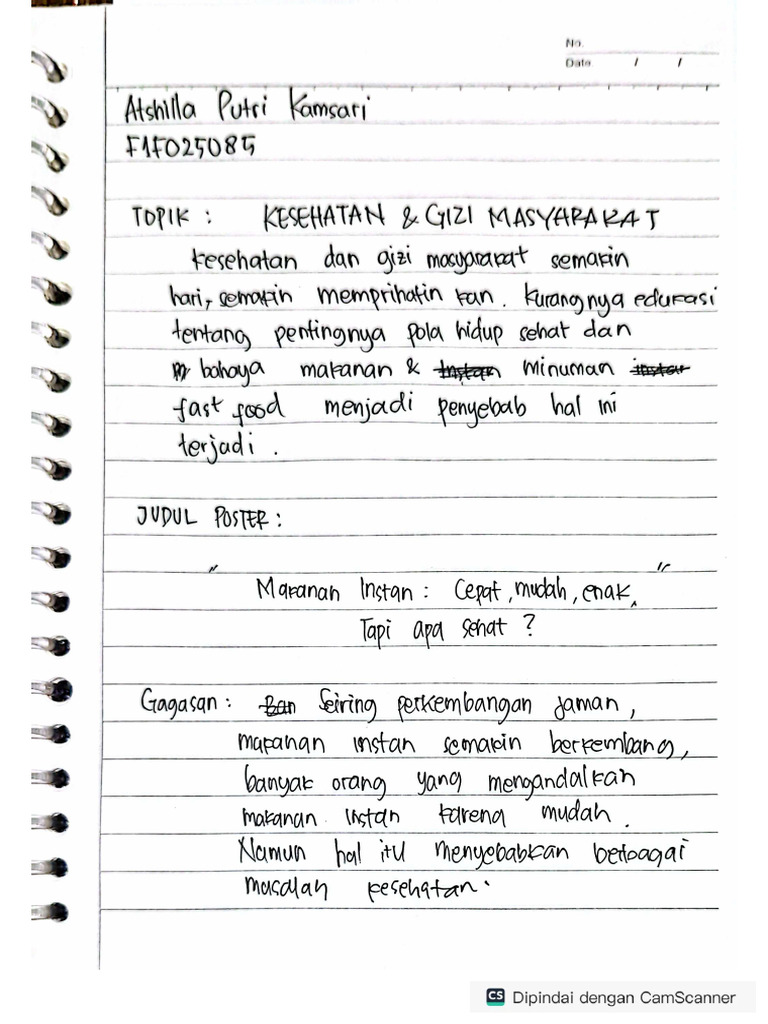 No.
Date / /
Atshilla Putri Kamsari
F1F025085
TOPIK : KESEHATAN & GIZI MASYARAKAT
kesehatan dan gizi masyarakat semakin
hari, semakin memprihatin kan. kurangnya edukasi
tentang pentingnya pola hidup sehat dan
bahaya makanan & instan minuman instan
fast food menjadi penyebab hal ini
terjadi.
JUDUL POSTER :
" Makanan Instan : Cepat, mudah, enak, "
Tapi apa sehat ?
Gagasan : Ban Seiring perkembangan jaman,
makanan instan semakin berkembang,
banyak orang yang mengandalkan
makanan instan karena mudah.
Namun hal itu menyebabkan berbagai
masalah kesehatan.
CS Dipindai dengan CamScanner